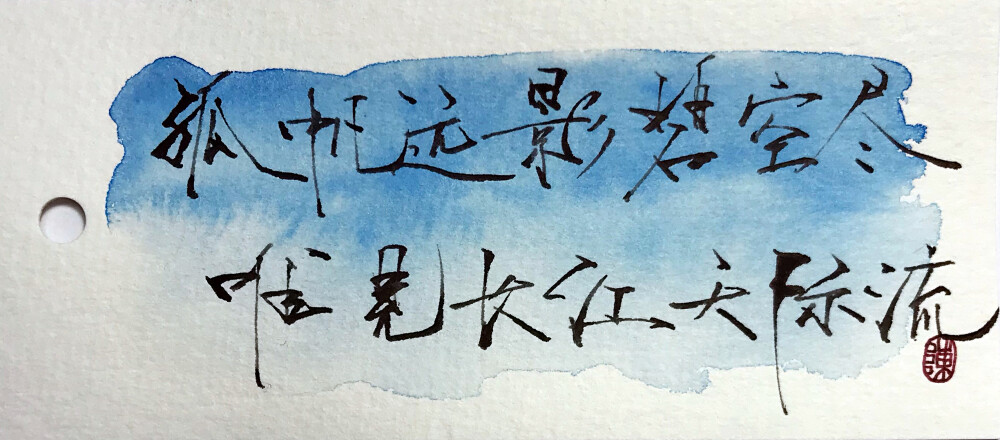 孤帆远影碧空尽
唯見长江天际流
陳